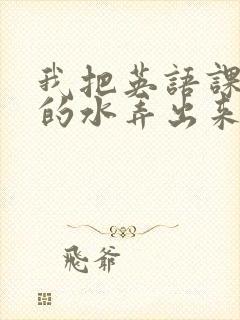 我把英語課
的水弄出來
飛爺